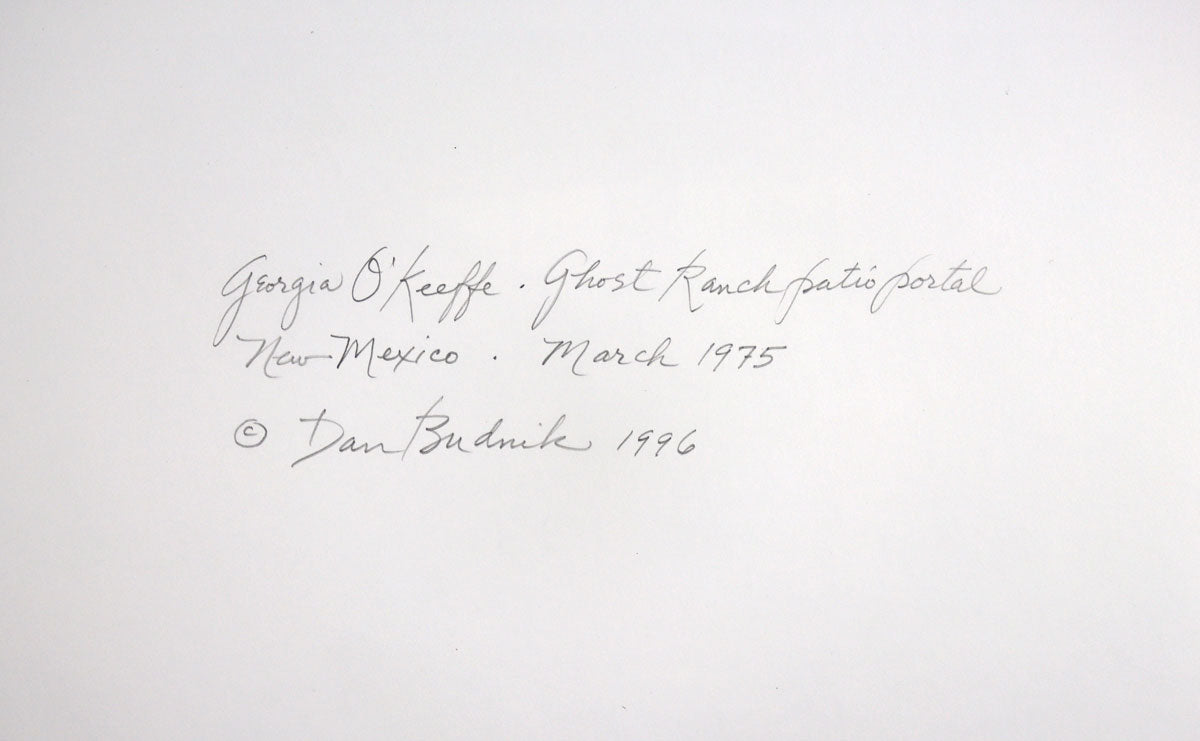 Georgia O'Keeffe . Ghost Ranch patio portal
New Mexico . March 1975
© Dan Budnik 1996